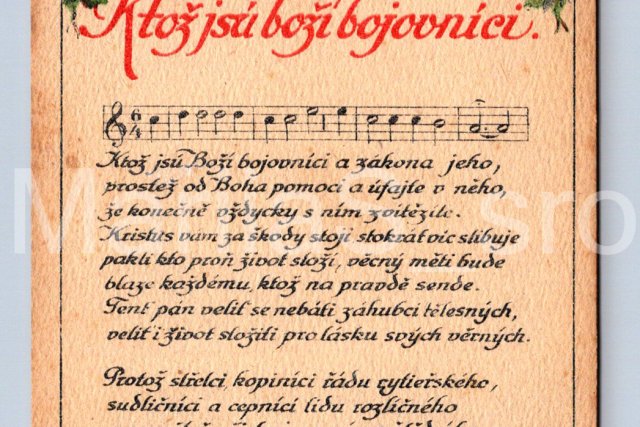 Ktož jsú boží bojovníci.
6
4
Ktož jsú Boží bojovníci a zákona jeho,
prostež od Boha pomoci a úfajte v něho,
že konečně vždycky s ním zvítězíte.
Kristus vám za škody stojí stokrát víc slibuje
pakli kto proň život složí, věčný míti bude
blaze každému, ktož na pravdě sende.
Tent pán velíť se nebáti záhubcí tělesných,
velíť i život složiti pro lásku svých věrných.
Protož střelci, kopiníci řádu rytieřského,
sudličníci a cepníci lidu rozličného